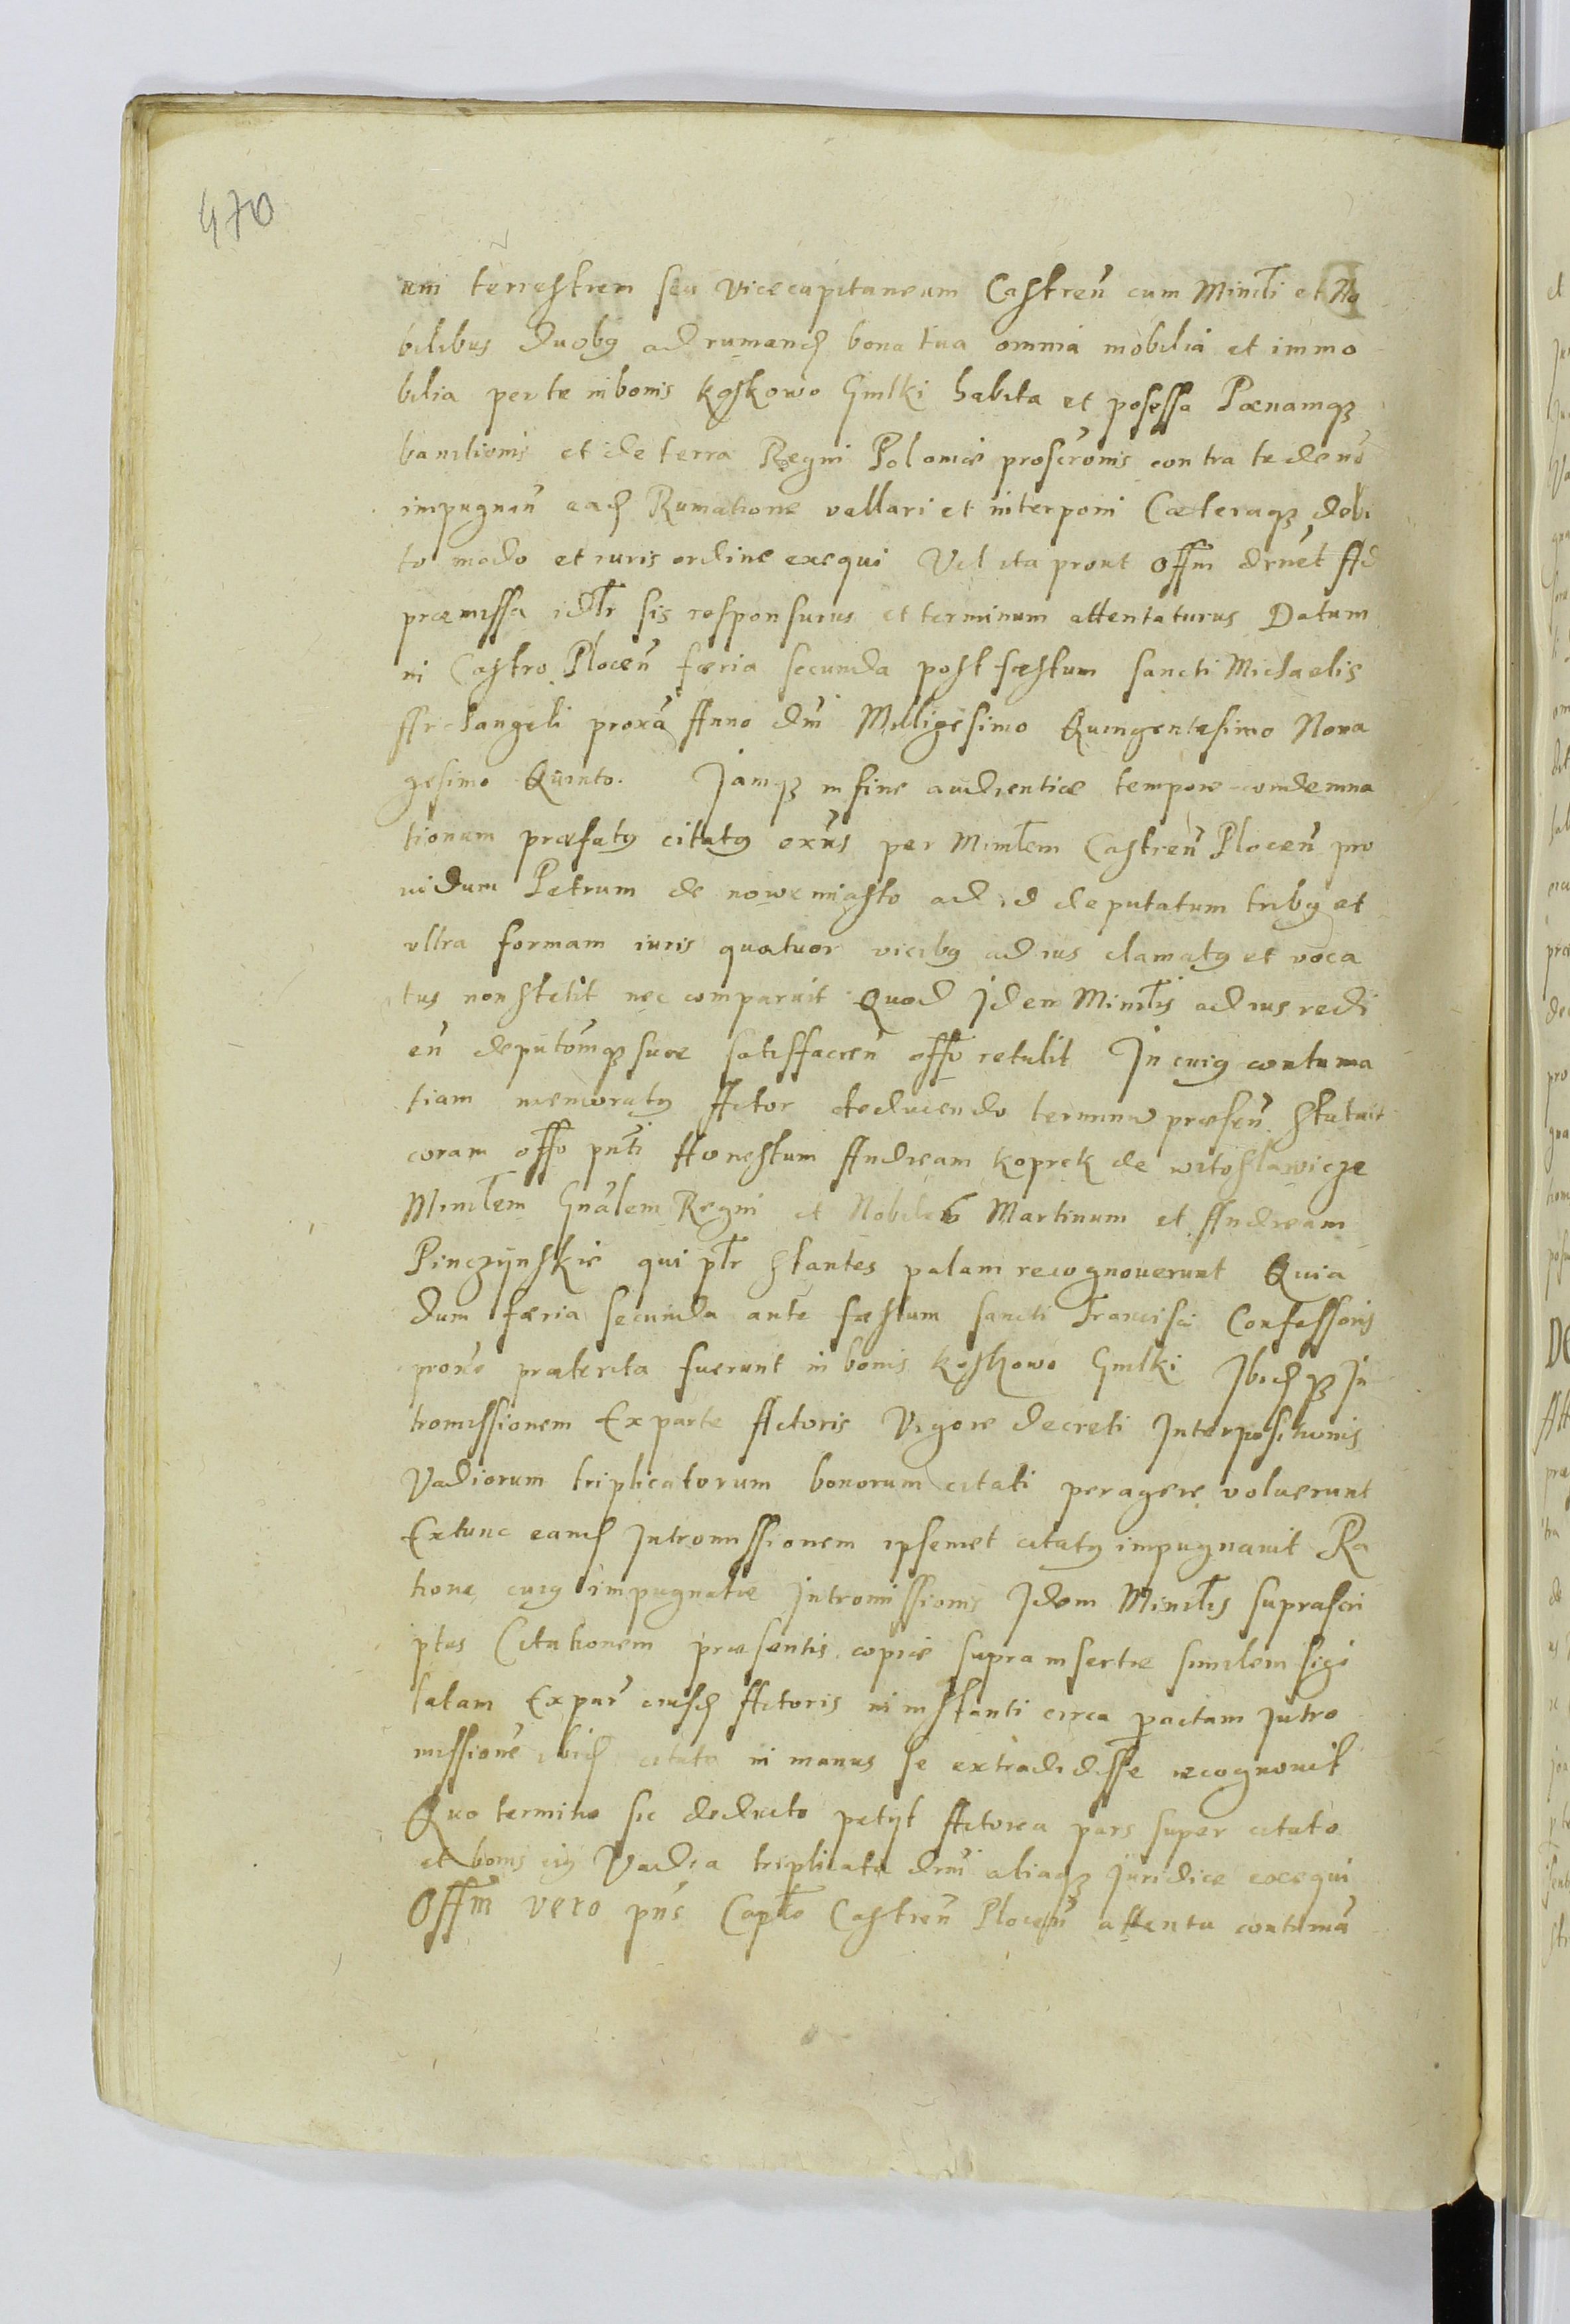 470
um terrestrem seu vicecapitaneum Castreñ cum Minrli et No
bilibus duobꝫ ad rumand bona tua omnia mobilia et immo
bilia per te in bonis Koskowo Gmlki habita et posessa Pœnamqꝫ
bannitionis et de terra Regni Poloniæ proscrõnis contra te deno
impugnañ ead Rumatione vallari et interponi Cæteraqꝫ debi
to modo et iuris ordine exequi Vel ita prout Offm drnet Ad
præmissa idlr sis responsurus et terminum attentaturus Datum
in Castro Ploceñ færia secunda post fæstum sancti Michaelis
Archangeli proxã Anno dni Milligesimo Quingentesimo Nona
gesimo Quinto. Jamqꝫ in fine audientiæ tempore condemna
tionum præfatꝫ citatꝫ exñs per Minrlem Castreñ Ploceñ pro
uidum Petrum de nowemiasto ad id deputatum tribꝫ et
vltra formam iuris quatuor vicibꝫ ad ius clamatꝫ et voca
tus non stetit nec comparuit Quod Jdem Minrlis ad ius redi
eñ deputõmqꝫ suæ satisfacieñ offo retulit Jn cuiꝫ contuma
tiam memoratꝫ Actor deducendo terminũ præseñ statuit
coram offo pnti Honestum Andream Koprek de witoslawicze
Minrlem Gnãlem Regni et Nobiles Martinum et Andream
Pinczÿnskie qui plr stantes palam recognouerunt Quia
dum færia secunda ante fæstum sancti Francisci Confessoris
proxe præterita fuerunt in bonis Koskowo Gmlki Jbidqꝫ Jn
tromissionem Ex parte Actoris Vigore decreti Jnterpositionis
Vadiorum triplicatorum bonorum citati peragere voluerunt
Extunc eand Jntromissionem ipsemet citatꝫ impugnauit Ra
tione cuiꝫ impugnatæ Jntromissionis Jdem Minrlis suprascri
ptus Citationem præsentis copiæ supra insertæ similem sigi
latam Ex par eiusd Actoris in instanti circa pactam Jntro
missionẽ ibid citato in manus se extradidisse recognouit
Quo termino sic deducto petÿt Actorea pars super citato
et bonis eiꝫ Vadia triplicata drni aliaqꝫ juridice exequi
Offm vero pns Caplo Castreñ Ploceñ attenta contumã